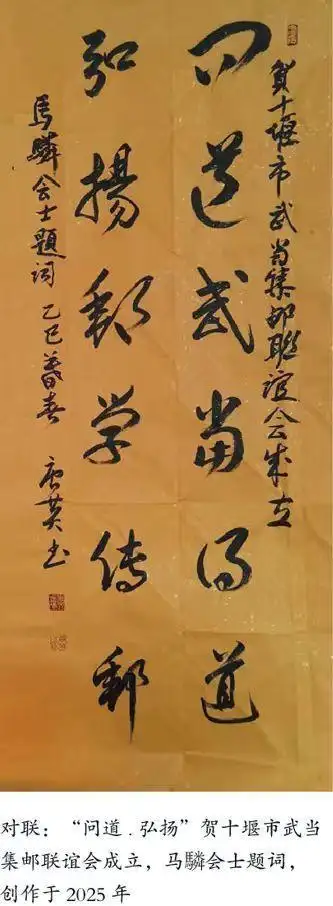 賀十堰市武当集邮联谊会成立
问道武當得道
弘揚郵学传郵
馬驎会士题词 乙巳暮春
对联：“问道.弘扬”贺十堰市武当
集邮联谊会成立，马驎会士题词，
创作于2025年